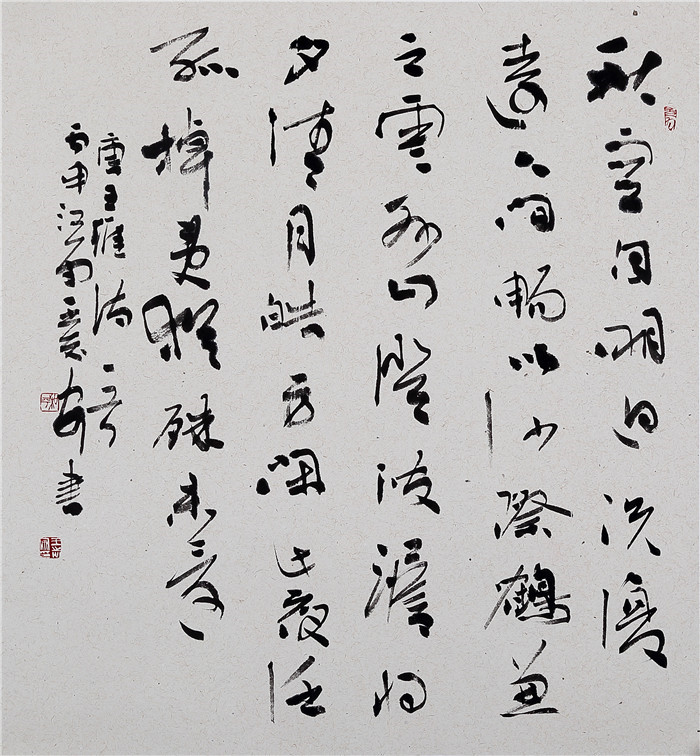 秋空自明迥况復
遠人间暢以沙際鶴兼
之雲外山澄波澹将
夕清月皓方閑此夜任
孤棹夷猶殊未還
唐王維詩一首
丙申江南書